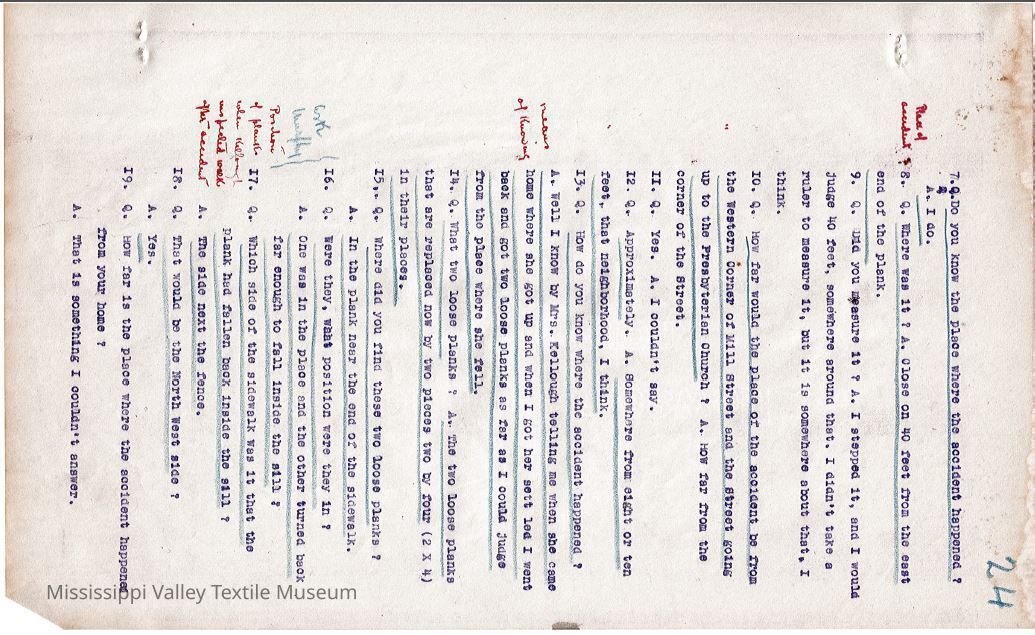 24
7. Q. Do you know the place where the accident happened ?
A. I do.
Place of
accident
8. Q. Where was it ? A. Close on 40 feet from the east
end of the plank.
9. Q. Did you measure it ? A. I stepped it, and I would
judge 40 feet, somewhere around that. I didn't take a
ruler to measure it, but it is somewhere about that, I
think.
10. Q. How far would the place of the accident be from
the Western Corner of Mill Street and the Street going
up to the Presbyterian Church ? A. How far from the
corner of the Street.
11. Q. Yes. A. I couldn't say.
12. Q. Approximately. A. Somewhere from eight or ten
feet, that neighborhood, I think.
13. Q. How do you know where the accident happened ?
means
of knowing
A. Well I know by Mrs. Kellough telling me when she came
home where she got up and when I got her sett led I went
back and got two loose planks as far as I could judge
from the place where she fell.
14. Q. What two loose planks ? A. The two loose planks
that are replaced now by two pieces two by four (2 X 4)
in their places.
15. Q. Where did you find these two loose planks ?
A. In the plank near the end of the sidewalk.
16. Q. Were they, waht position were they in ?
A. One was in the place and the other turned back
far enough to fall inside the sill ?
Position
of planks
when Kellough
inspected walk
after accident
17. Q. Which side of the sidewalk was it that the
plank had fallen back inside the sill ?
A. The side next the fence.
18. Q. That would be the North West side ?
A. Yes.
19. Q. How far is the place where the accident happened
from your home ?
A. That is something I couldn't answer.
Mississippi Valley Textile Museum